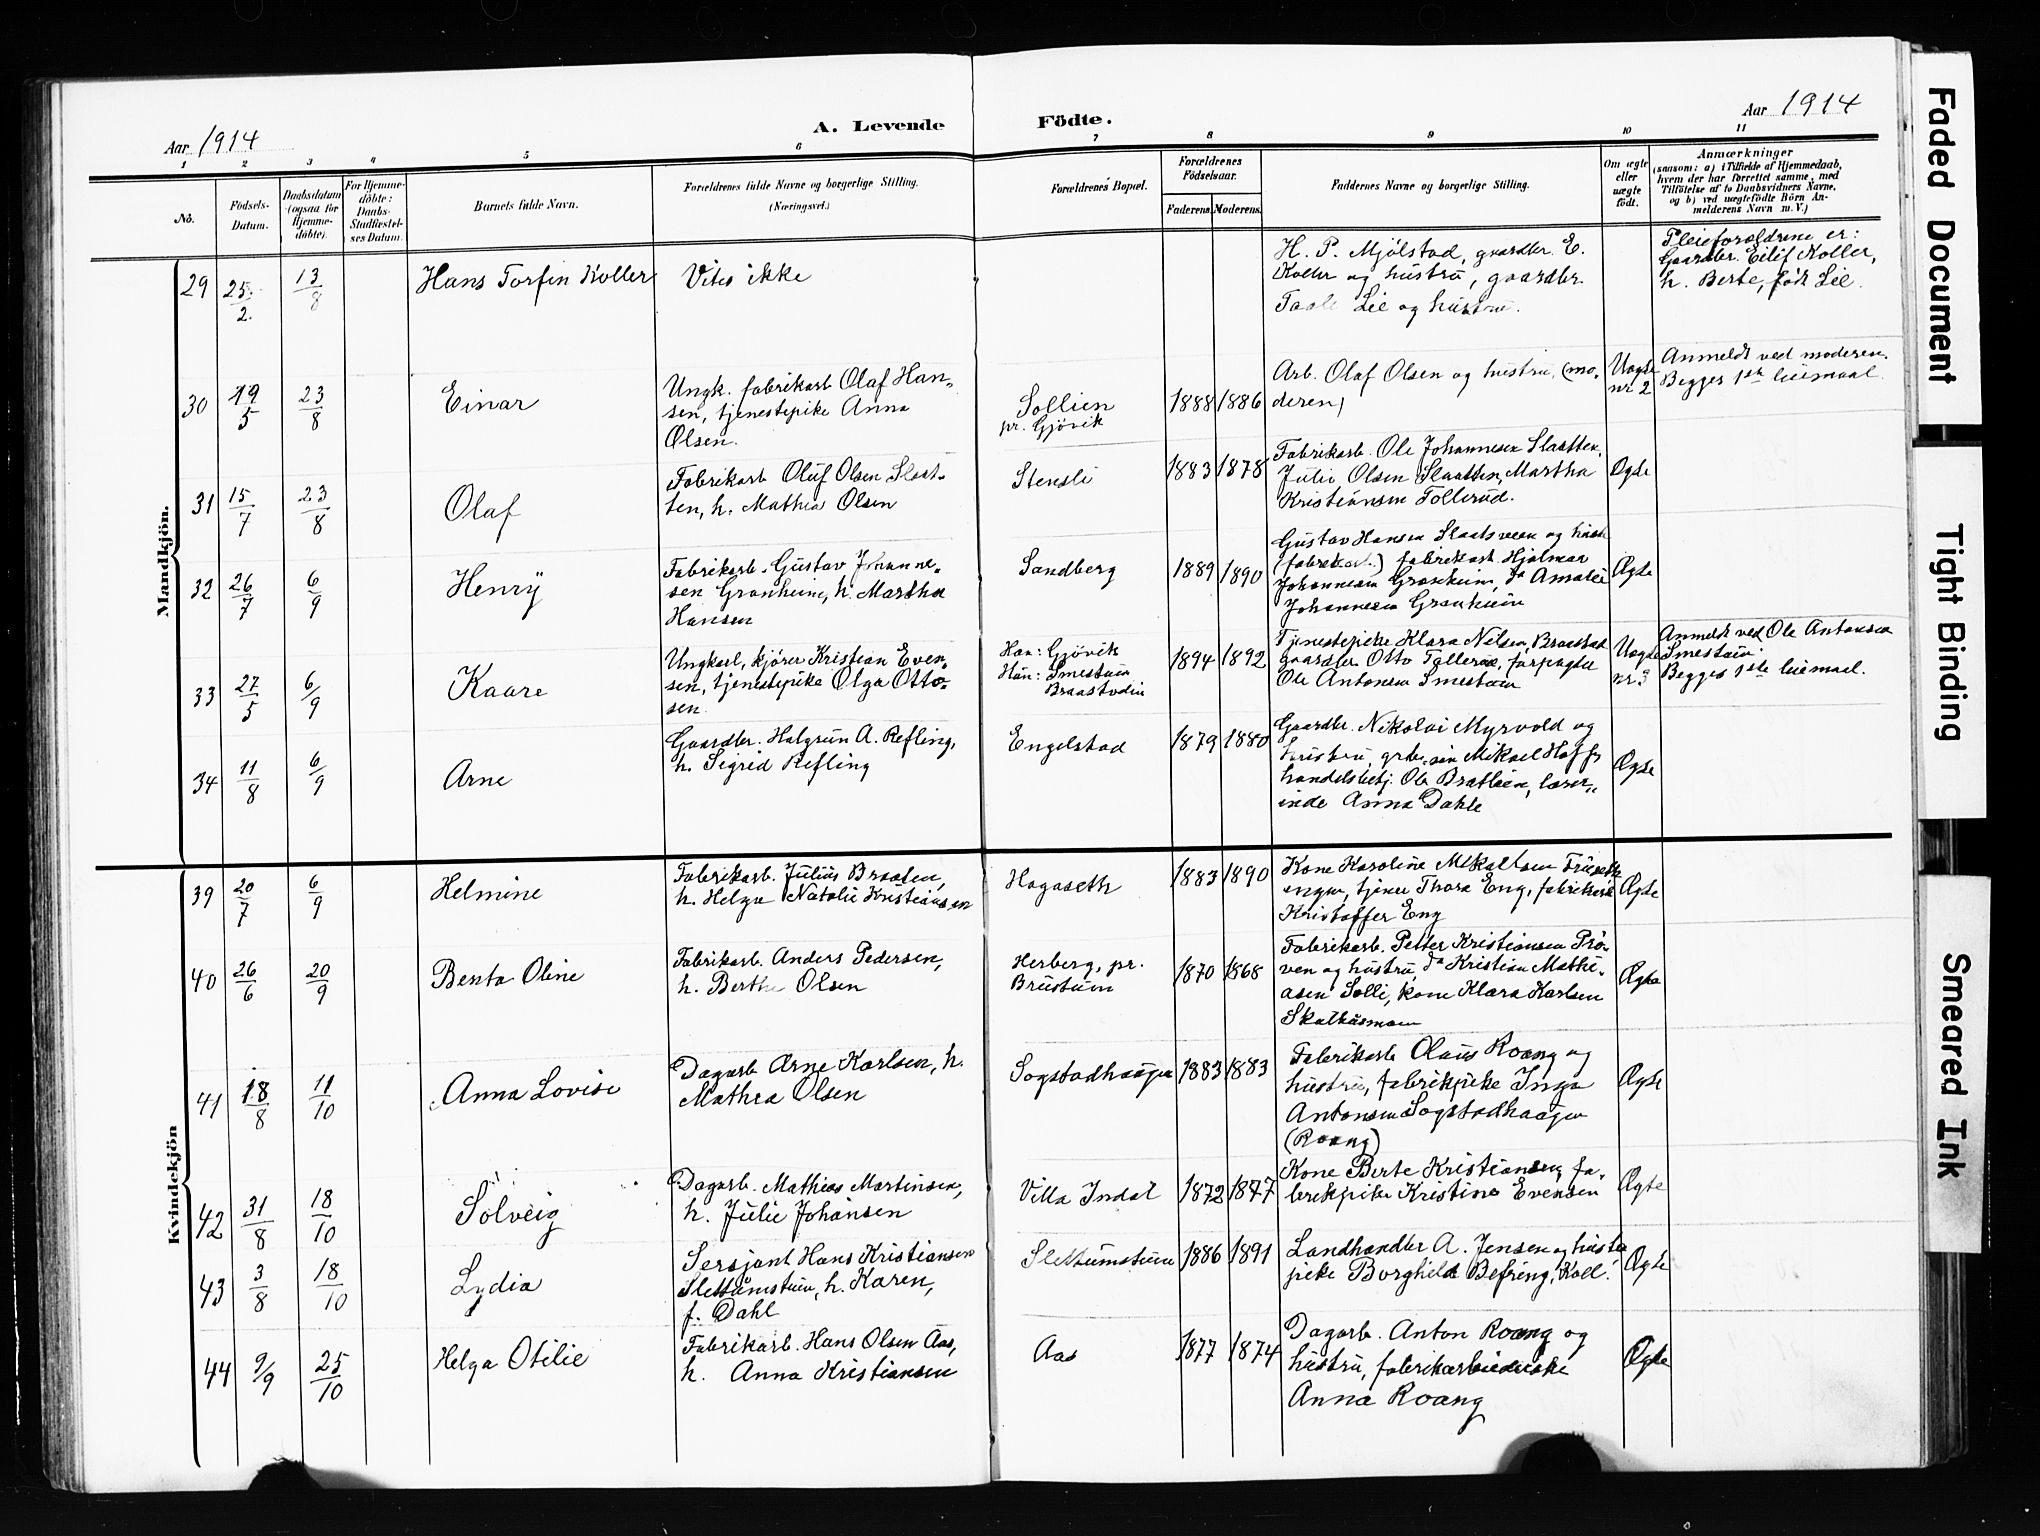 Aar 1914
A. Levende
Födte.
Aar 1914
1 2 3 4 5 6 7 8 9 10 11
No.
Födsels-
Datum.
Daabsdatum
(ogsaa for
Hjemme-
döbte).
For Hjemme-
döbte:
Daabs-
Stadfæstel-
ses Datum.
Barnets fulde Navn.
Forældrenes fulde Navne og borgerlige Stilling.
(Næringsvei.)
Forældrenes Bopæl.
Forældrenes
Födselsaar.
Faderens. Moderens.
Faddernes Navne og borgerlige Stilling.
Om ægte
eller
uægte
födt.
Anmærkninger
(saasom: a) i Tilfælde af Hjemmedaab,
hvem der har forrettet samme, med
Tilföielse af to Daabsvidners Navne,
og b) ved uægtefödte Börn An-
melderens Navn m. V.)
Mandkjön.
29 25/2. 13/8 Hans Torfin Koller
Vites ikke
H. P. Mjölstad, gaardbr. E.
Koller og hustru, gaardbr.
Lie og hustru.
Pleieforældrene er:
Gaardbr. Eilif Koller,
h. Berte, föd Lie.
30 19/5 23/8 Einar
Ungk. fabrikarb Olaf Han-
sen, tjenestepike Anna
Olsen.
Sollien
pr. Gjövik
1888 1886
Arb. Olaf Olsen og hustru, (mo-
deren)
Uægte
nr 2
Anmeldt ved moderen.
Begges 1ste leiemaal.
31 15/7 23/8 Olaf
Fabrikarb Oluf Olsen Slaat-
ten, h. Mathea Olsen
Stensli
1883 1878
Fabrikarb. Ole Johannesen Slaatten,
Julie Olsen Slaatten, Martha
Kristiansen Tollerud.
Ægte
32 26/7 6/9 Henry
Fabrikarb. Gustav Johanne-
sen Granheim, h. Martha
Hansen
Sandberg
1889 1890
Gustav Hansen Slaatsveen og hustr
(fabrikar.) fabrikarb. Hjalmar
Johannesen Granheim, do Amalie
Johannesen Granheim
Ægte
33 27/5 6/9 Kaare
Ungkarl, kjörer Kristian Even-
sen, tjenestepike Olga Otto-
sen.
Han: Gjövik
Hun: Smestuen
Braastadlin
1894 1892
Tjenestepike Klara Nilsen, Braastad
gaardbr. Otto Tollerud, forpagter
Ole Antonsen Smestuen
Uægte
nr. 3
Anmeldt ved Ole Antonsen
Smestuen.
Begges 1ste leiemaal.
34 11/8 6/9 Arne
Gaardbr. Halgrim A. Refling,
h. Sigrid Refling
Engelstad
1879 1880
Gaardbr. Nikolai Myrvold og
hustru, grbr.sön Mikael Hoff,
handelsbetj. Ole Bratlien, lærer-
inde Anna Dahle
Ægte
Kvindekjön
39 20/7 6/9 Helmine
Fabrikarb. Julius Braaten,
h. Helga Natalie Kristiansen
Hagaseth
1883 1890
Kone Karoline Mikaelsen
engen, tjener Thora Eng, fabrikarb
Kristoffer Eng
Ægte
40 26/6 20/9 Benta Oline
Fabrikarb. Anders Pedersen,
h. Berthe Olsen
Herberg, pr.
Brustuen
1870 1868
Fabrikarb. Petter Kristiansen Prö-
ven og hustru, do Kristian Mathi-
asen Solli, kone Klara Karlsen
Skalhusmoen
Ægte
41 18/8 11/10 Anna Lovise
Dagarb Arne Karlsen, h.
Mathea Olsen
Sogstadhaagen
1883 1883
Fabrikarb Olaus Roang og
hustru, fabrikpike Inga
Antonsen Sogstadhaagen
(Roang)
Ægte
42 31/8 18/10 Sölveig
Dagarb. Mathias Martinsen,
h. Julie Johansen
Villa Indal
1872 1877
Kone Berte Kristiansen, fa-
brikpike Kristine Evensen
Ægte
43 3/8 18/10 Lydia
Sersjant Hans Kristiansen
Slettumstuen, h. Karen,
f. Dahl
Slettumstuen
1886 1891
Landhandler A. Jensen og hustru
pike Borghild Befring, Koll.
Ægte
44 9/9 25/10 Helga Otilie
Fabrikarb. Hans Olsen Aas,
h. Anna Kristiansen
Aas
1877 1874
Dagarb. Anton Roang og
hustru, fabrikarbeiderske
Anna Roang
Ægte
Faded Document
Tight Binding
Smeared Ink